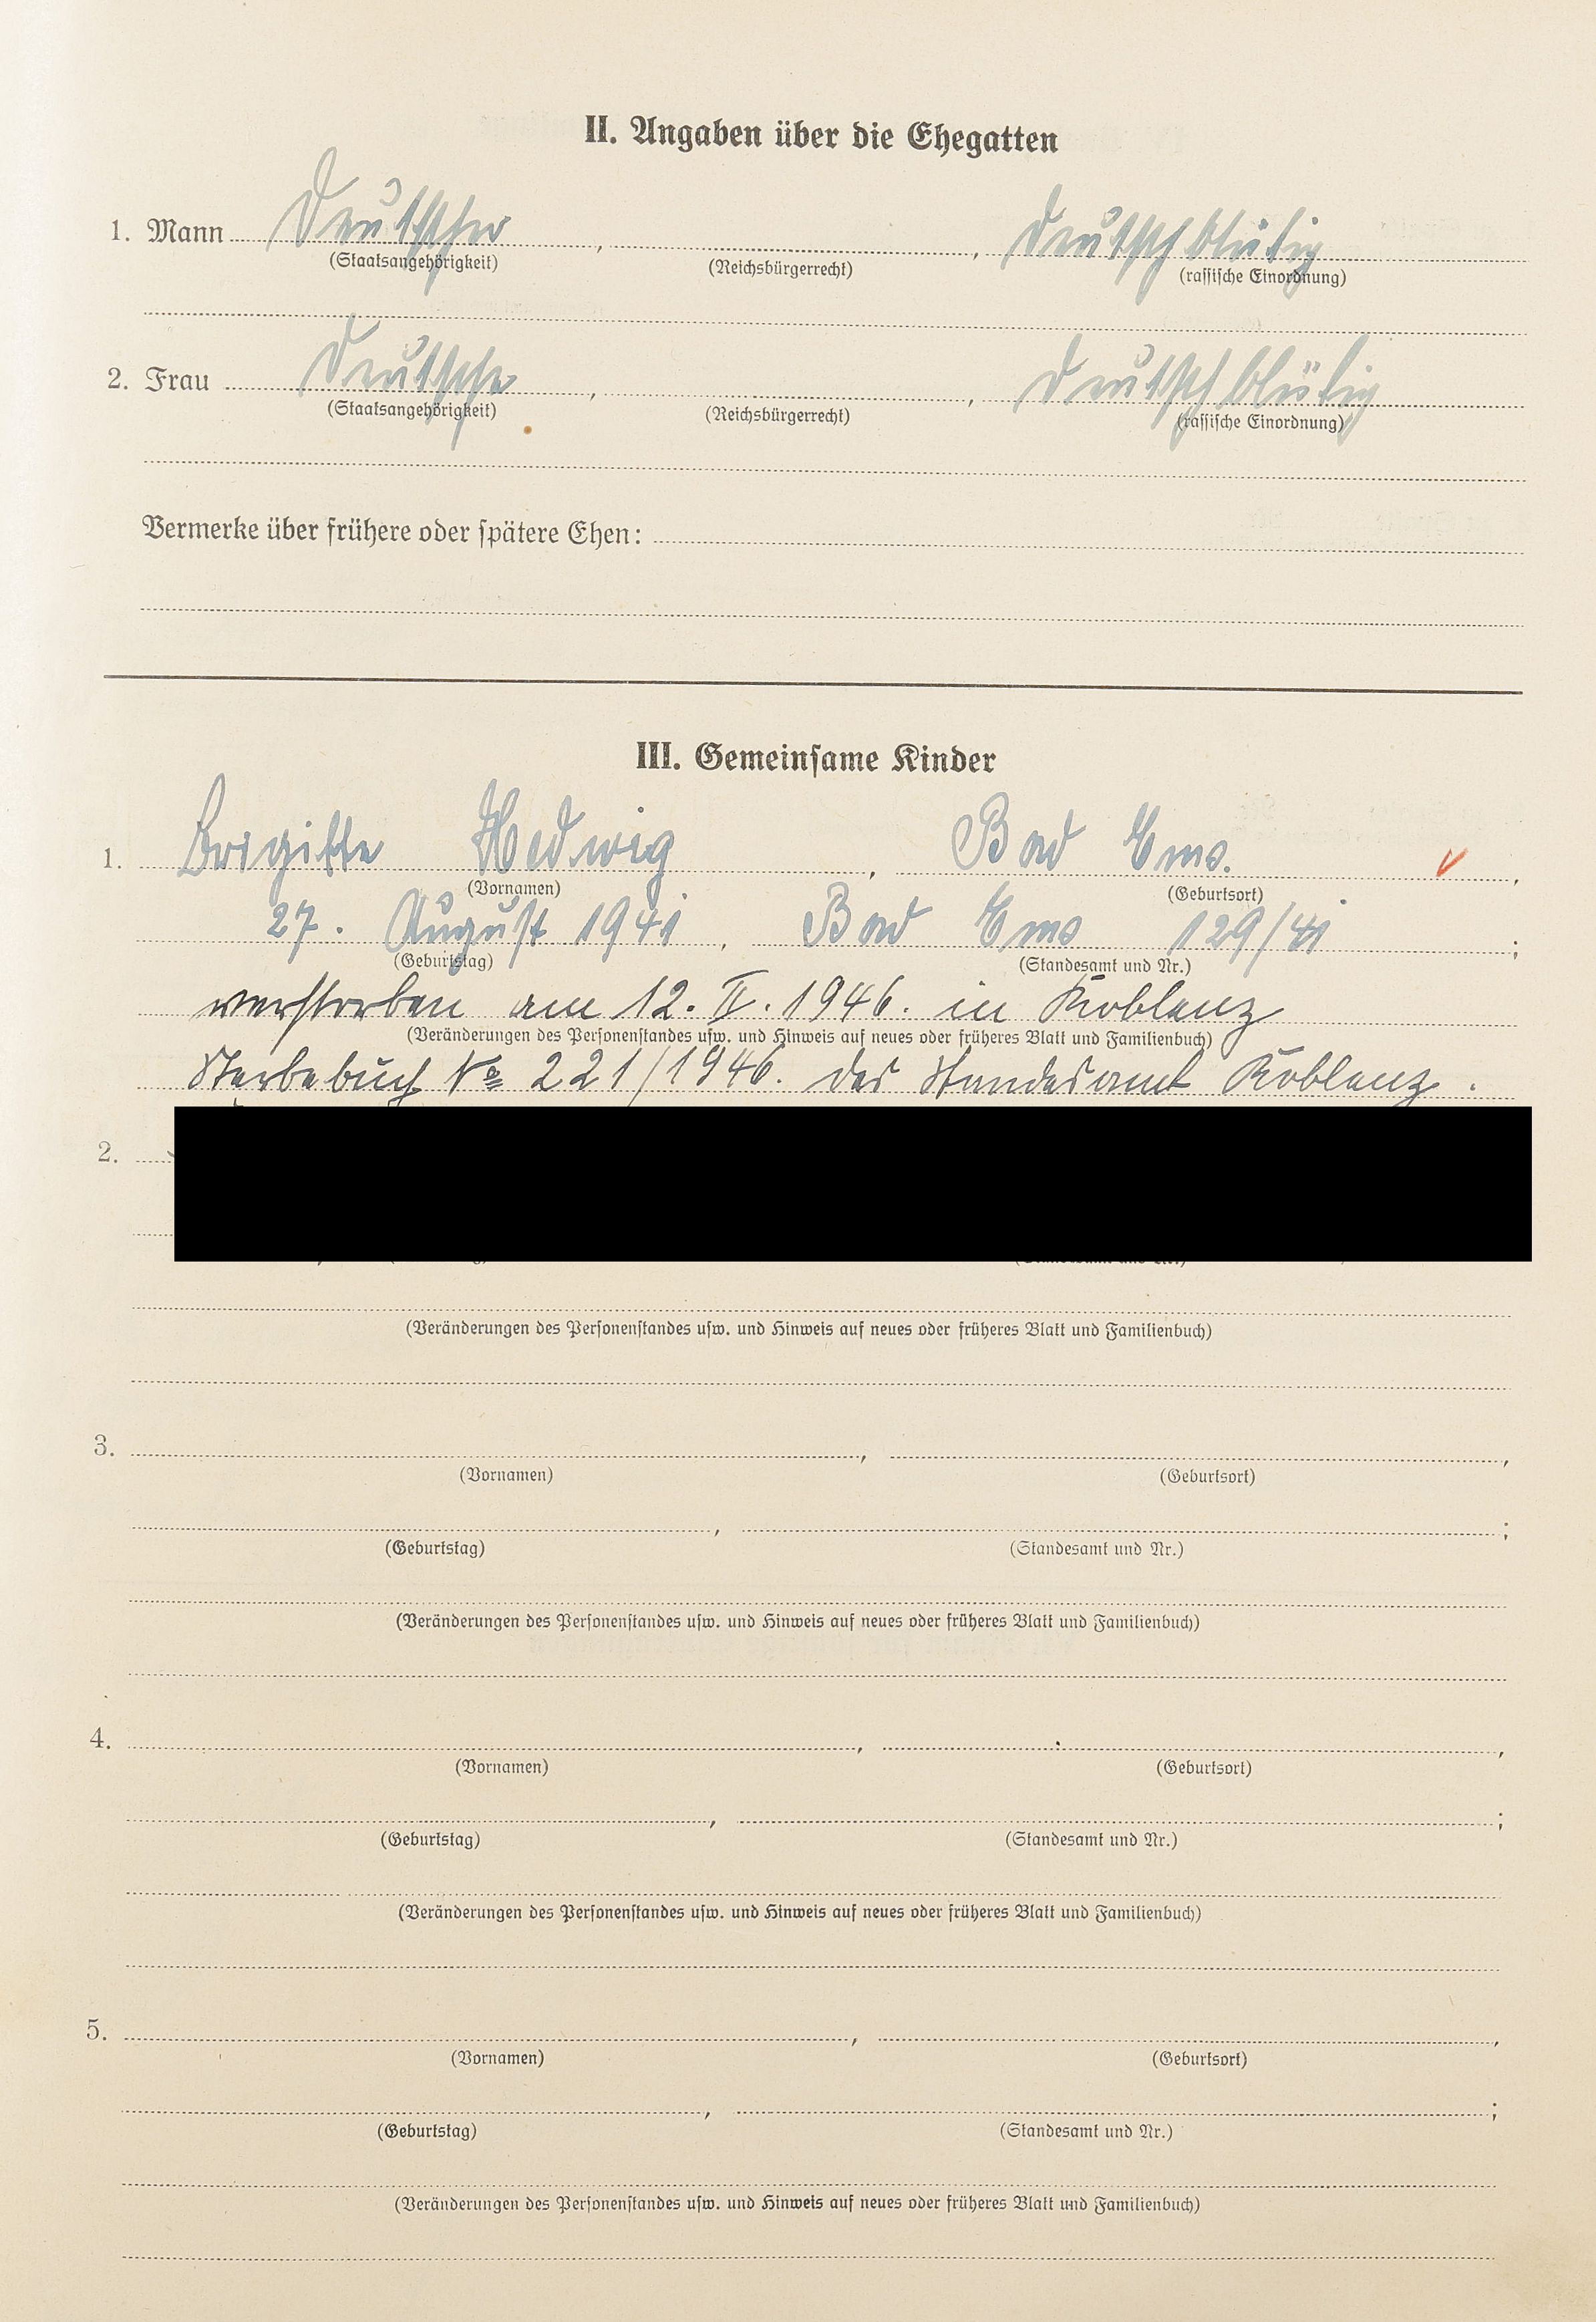 II. Angaben über die Ehegatten
1. Mann Deutscher, , deutschblütig
(Staatsangehörigkeit) (Reichsbürgerrecht) (rassische Einordnung)
2. Frau Deutsche, , deutschblütig
(Staatsangehörigkeit) (Reichsbürgerrecht) (rassische Einordnung)
Vermerke über frühere oder spätere Ehen:
III. Gemeinsame Kinder
1. Brigitte Hedwig, Bad Ems.,
(Vornamen) (Geburtsort)
27. August 1941, Bad Ems 129/41;
(Geburtstag) (Standesamt und Nr.)
verstorben am 12. II. 1946. in Koblenz
(Veränderungen des Personenstandes usw. und Hinweis auf neues oder früheres Blatt und Familienbuch)
Sterbebuch No 221/1946. des Standesamt Koblenz.
2.
(Veränderungen des Personenstandes usw. und Hinweis auf neues oder früheres Blatt und Familienbuch)
3. , ,
(Vornamen) (Geburtsort)
, ;
(Geburtstag) (Standesamt und Nr.)
(Veränderungen des Personenstandes usw. und Hinweis auf neues oder früheres Blatt und Familienbuch)
4. , ,
(Vornamen) (Geburtsort)
, ;
(Geburtstag) (Standesamt und Nr.)
(Veränderungen des Personenstandes usw. und Hinweis auf neues oder früheres Blatt und Familienbuch)
5. , ,
(Vornamen) (Geburtsort)
, ;
(Geburtstag) (Standesamt und Nr.)
(Veränderungen des Personenstandes usw. und Hinweis auf neues oder früheres Blatt und Familienbuch)